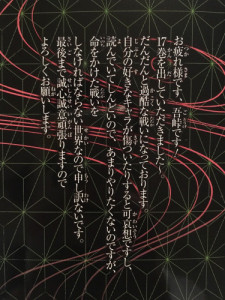 お疲れ様です。吾峠です。
17巻を出していただきました～
だんだんと過酷な戦いになっております
自分の好きなキャラが傷ついたりすると可哀想ですし、
読んでいてしんどいので、あまりやりたくないのですが、
命をかけた戦いを
しなければならない世界なので申し訳ないです。
最後まで誠心誠意頑張りますので
よろしくお願いします。